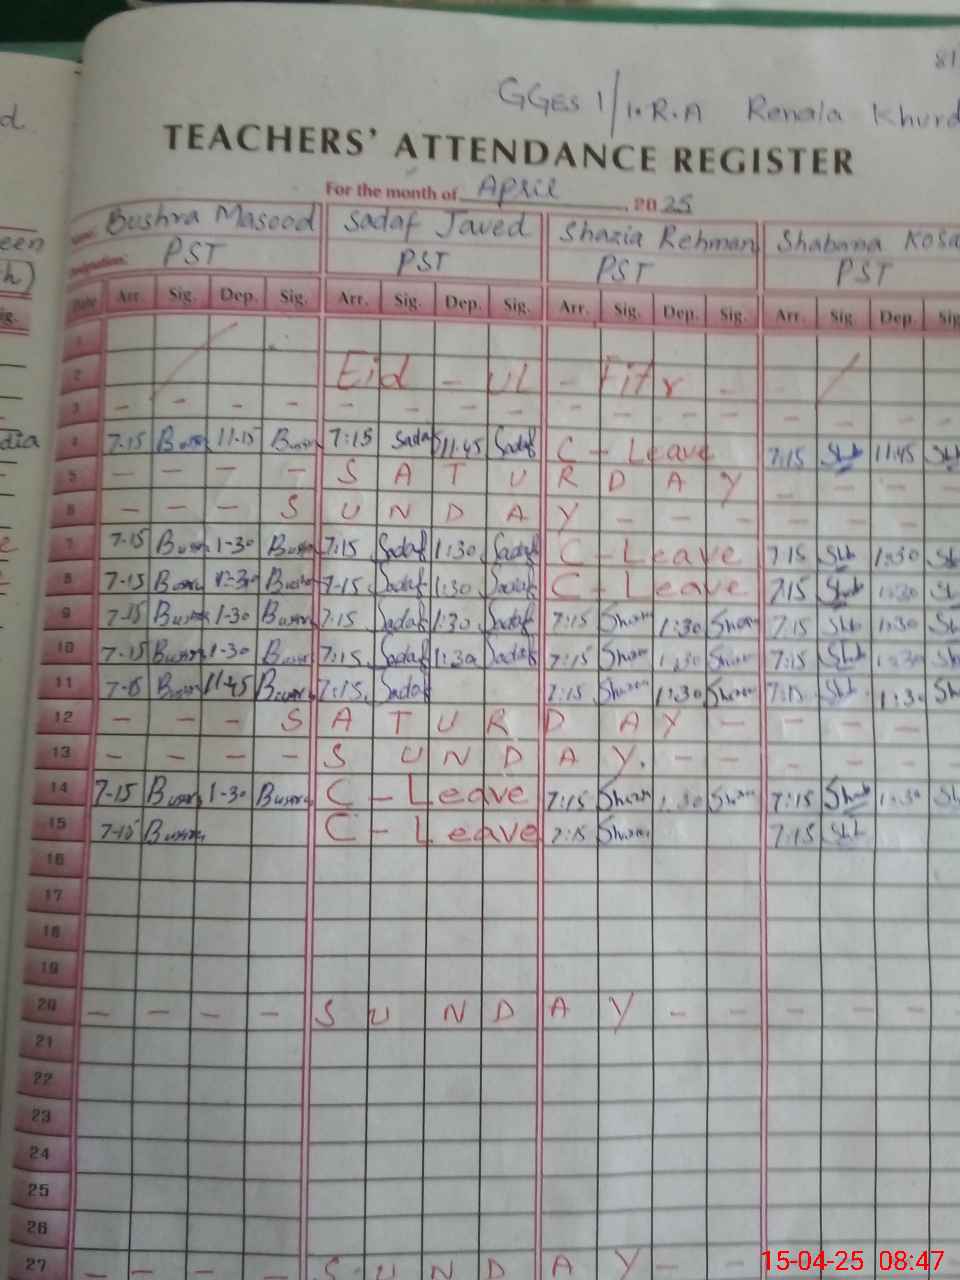 81
GGES 1/1.R.A Renala Khurd
TEACHERS' ATTENDANCE REGISTER
For the month of April, 2025
Name: Bushra Masood Sadaf Javed Shazia Rehman Shabana
Designation: PST PST PST PST
Date Arr. Sig. Dep. Sig. Arr. Sig. Dep. Sig. Arr. Sig. Dep. Sig. Arr. Sig. Dep. Sig
1
2 Eid - Ul - Fitr - -
3 - - - - - - - - - - - - - - -
4 7-15 11-15 7:15 Sadaf 11:45 Sadaf C - Leave 7:15 Shb 11:45
5 - - - - S A T U R D A Y - - -
6 - - - S U N D A Y - - - - - -
7 7-15 1-30 7:15 Sadaf 1:30 Sadaf C - Leave 7:15 Shb 1:30
8 7-15 1-30 7-15 Sadaf 1:30 Sadaf C - Leave 7:15 Shb 1:30
9 7-15 1-30 7:15 Sadaf 1:30 Sadaf 7:15 1:30 7:15 Shb 1:30
10 7-15 1-30 7:15 Sadaf 1:30 Sadaf 7:15 1:30 7:15 Shb 1:30
11 7-15 11-45 7:15 Sadaf 7:15 1:30 7:15 Shb 1:30
12 - - - S A T U R D A Y - - - -
13 - - - - S U N D A Y. - - - -
14 7-15 1-30 C - Leave 7:15 1:30 7:15 Shb 1:30
15 7-15 C - Leave 7:15 7:15 Shb
16
17
18
19
20 - - - - S U N D A Y - - - - -
21
22
23
24
25
26
27 - - - - S U N D A Y - -
15-04-25 08:47